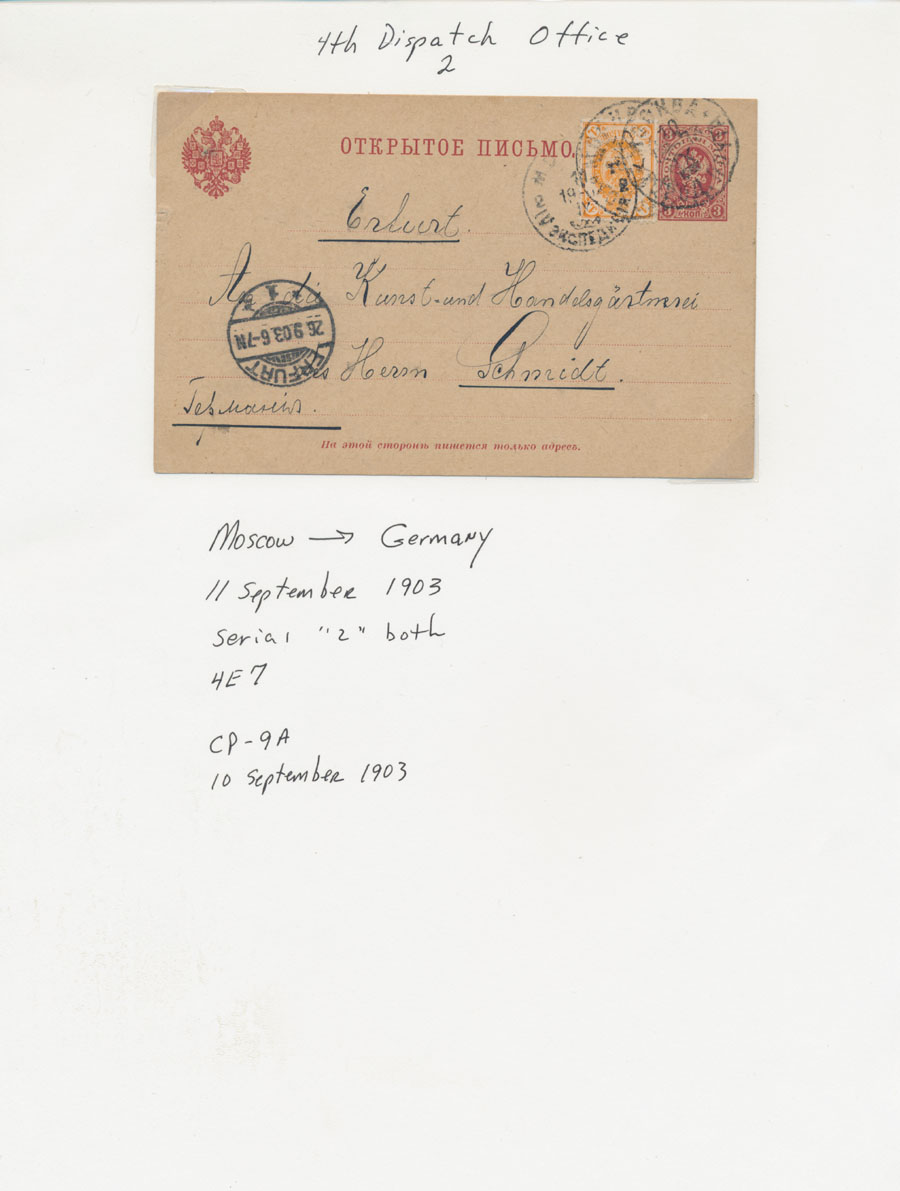 4th Dispatch Office
2
ОТКРЫТОЕ ПИСЬМО.
МОСКВА
IV ЭКСПЕДИЦІЯ
2
3 КОП 3
Erfurt.
An die Kunst- und Handelsgärtnerei
ERFURT
26.9.03.6-7N
1
des Herrn Schmidt.
Германія.
На этой сторонѣ пишется только адресъ.
Moscow → Germany
11 September 1903
Serial "2" both
4E7
CP-9A
10 September 1903